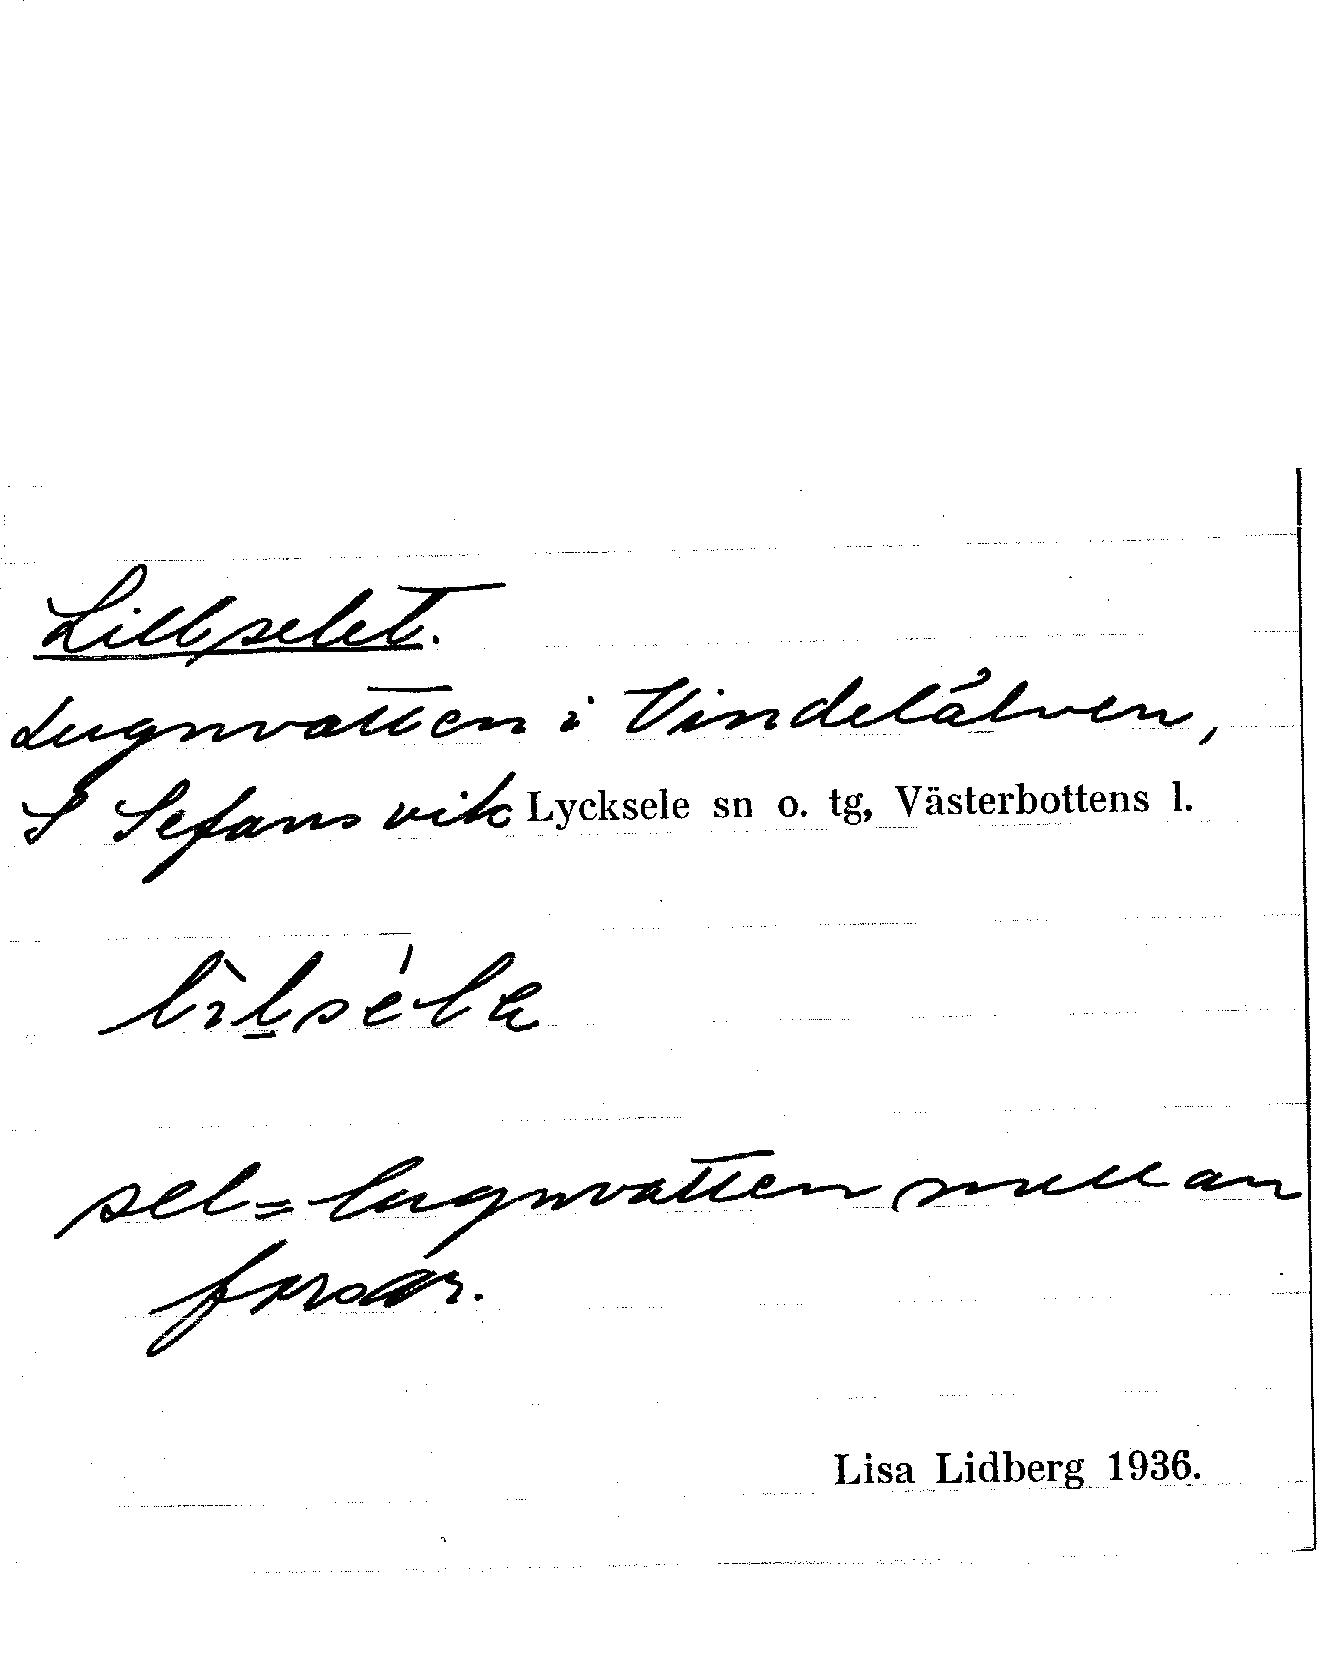 Lillselet.
Lugnvatten i Vindelälven,
S Sefansvik Lycksele sn o. tg, Västerbottens l.
sel = lugnvatten mellan
forsar.
Lisa Lidberg 1936.